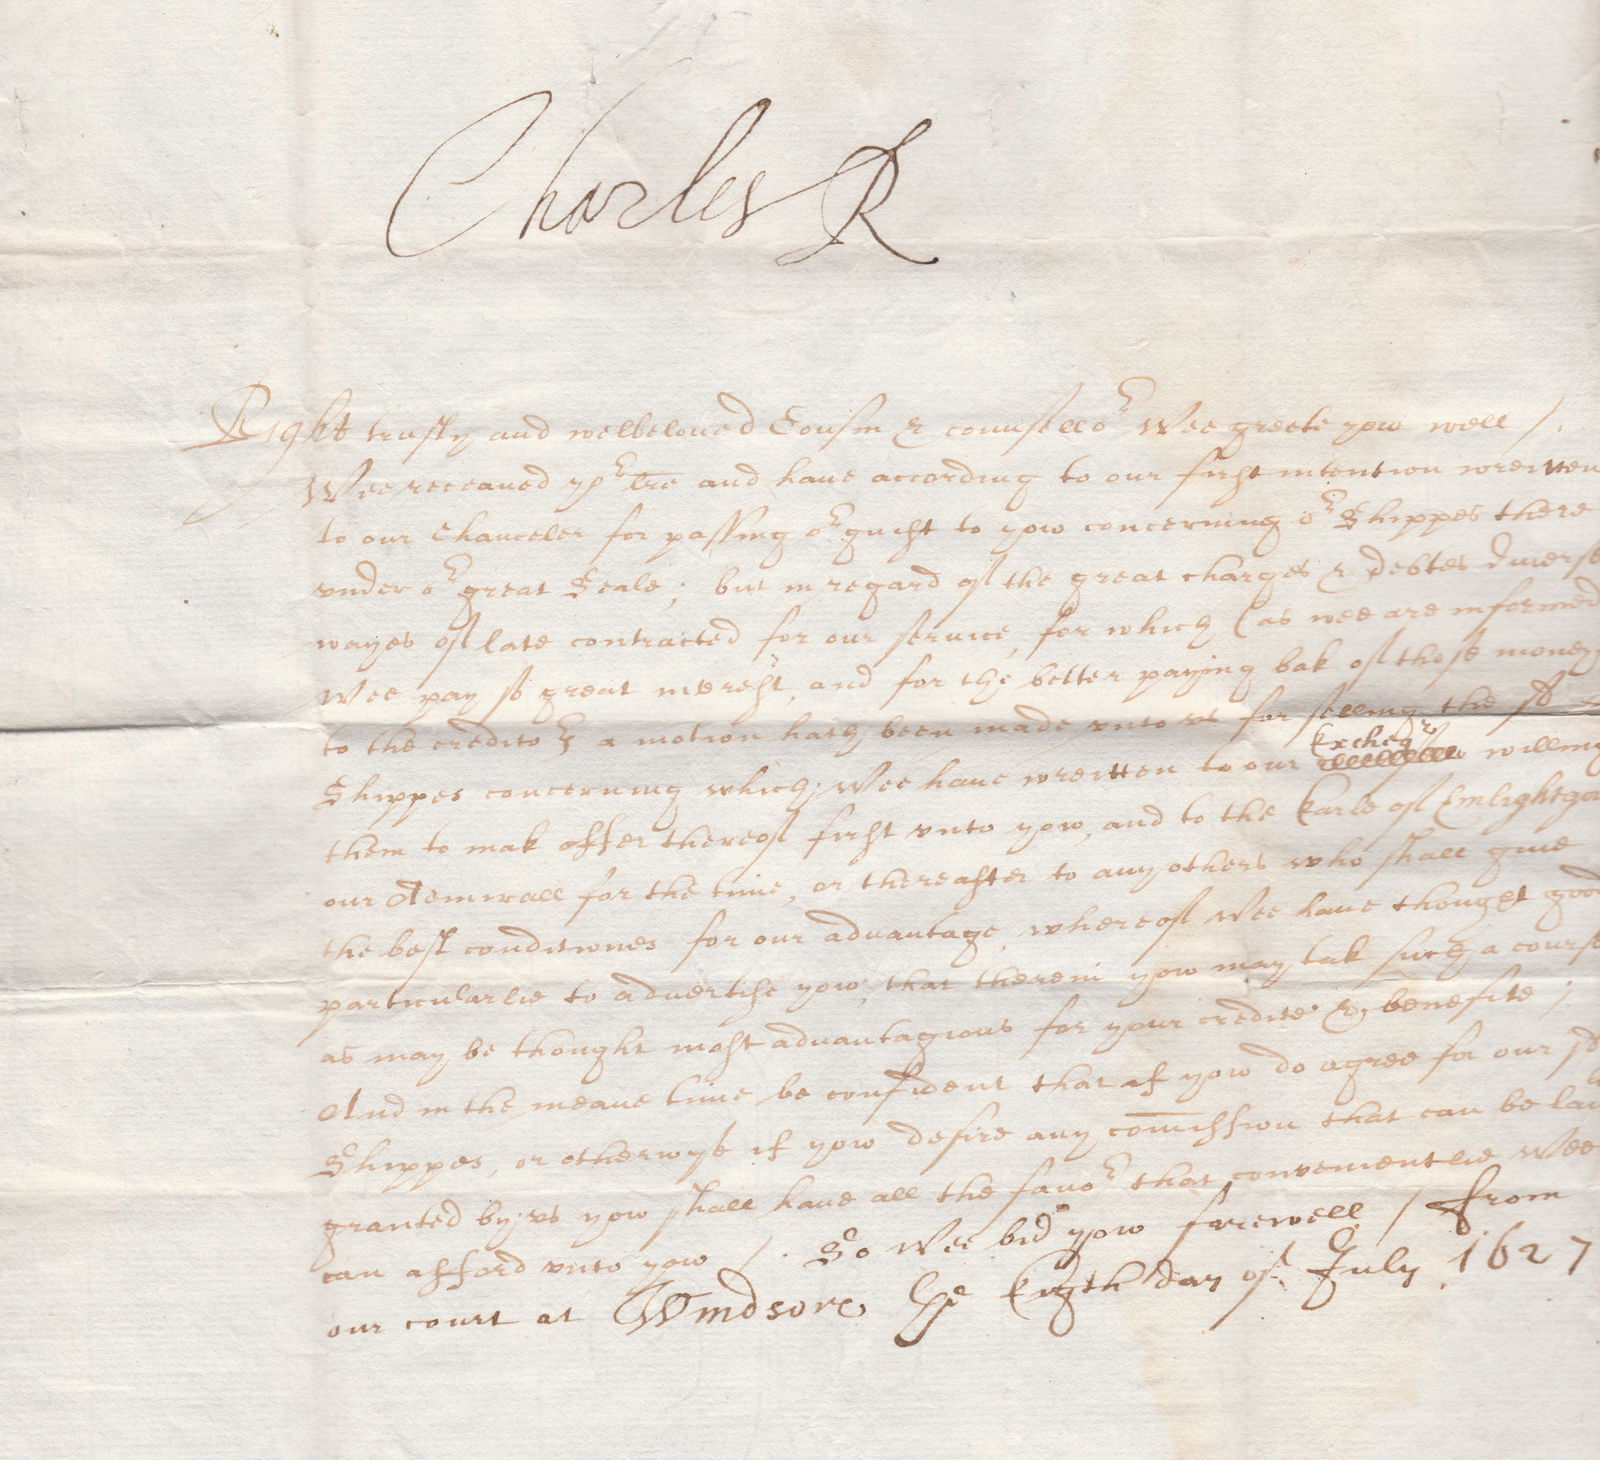 Charles R
Right trusty and welbeloued Cousin & counsello^r Wee greete yow well /.
Wee receaued yo^r lre and haue according to our first intention wreitten
to our Chanceler for passing o^r guift to yow concerning o^r Shippes there
vnder o^r great Seale; but in regard of the great charges & debtes diuerse
wayes of late contracted for our seruice, for which (as wee are informed
Wee pay so great interest, and for the better paying bak of those moneys
to the credito^rs a motion hath been made vnto vs for selling the s^d
Shippes concerning which, Wee haue wreitten to our Excheq^r willing
them to mak offer thereof first vnto yow, and to the Earle of Linlightgow
our Admirall for the time, or thereafter to any others who shall giue
the best conditiones for our aduantage, whereof Wee haue thought good
particularlie to aduertise yow, that therein yow may tak such a course
as may be thought most aduantagious for your credite & benefite;
And in the meane time be confident that if yow do agree for our s^d
Shippes, or otherwyse if yow desire any comission that can be
granted by vs yow shall haue all the fauo^r that conuenientlie Wee
can afford vnto yow /. So Wee bid yow farewell / from
our court at Windsore the eight day of July 1627